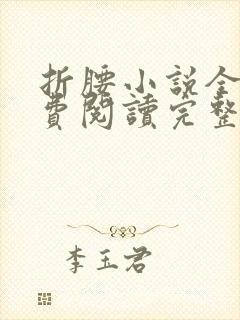 折腰小説全
費閱讀完整
李玉君